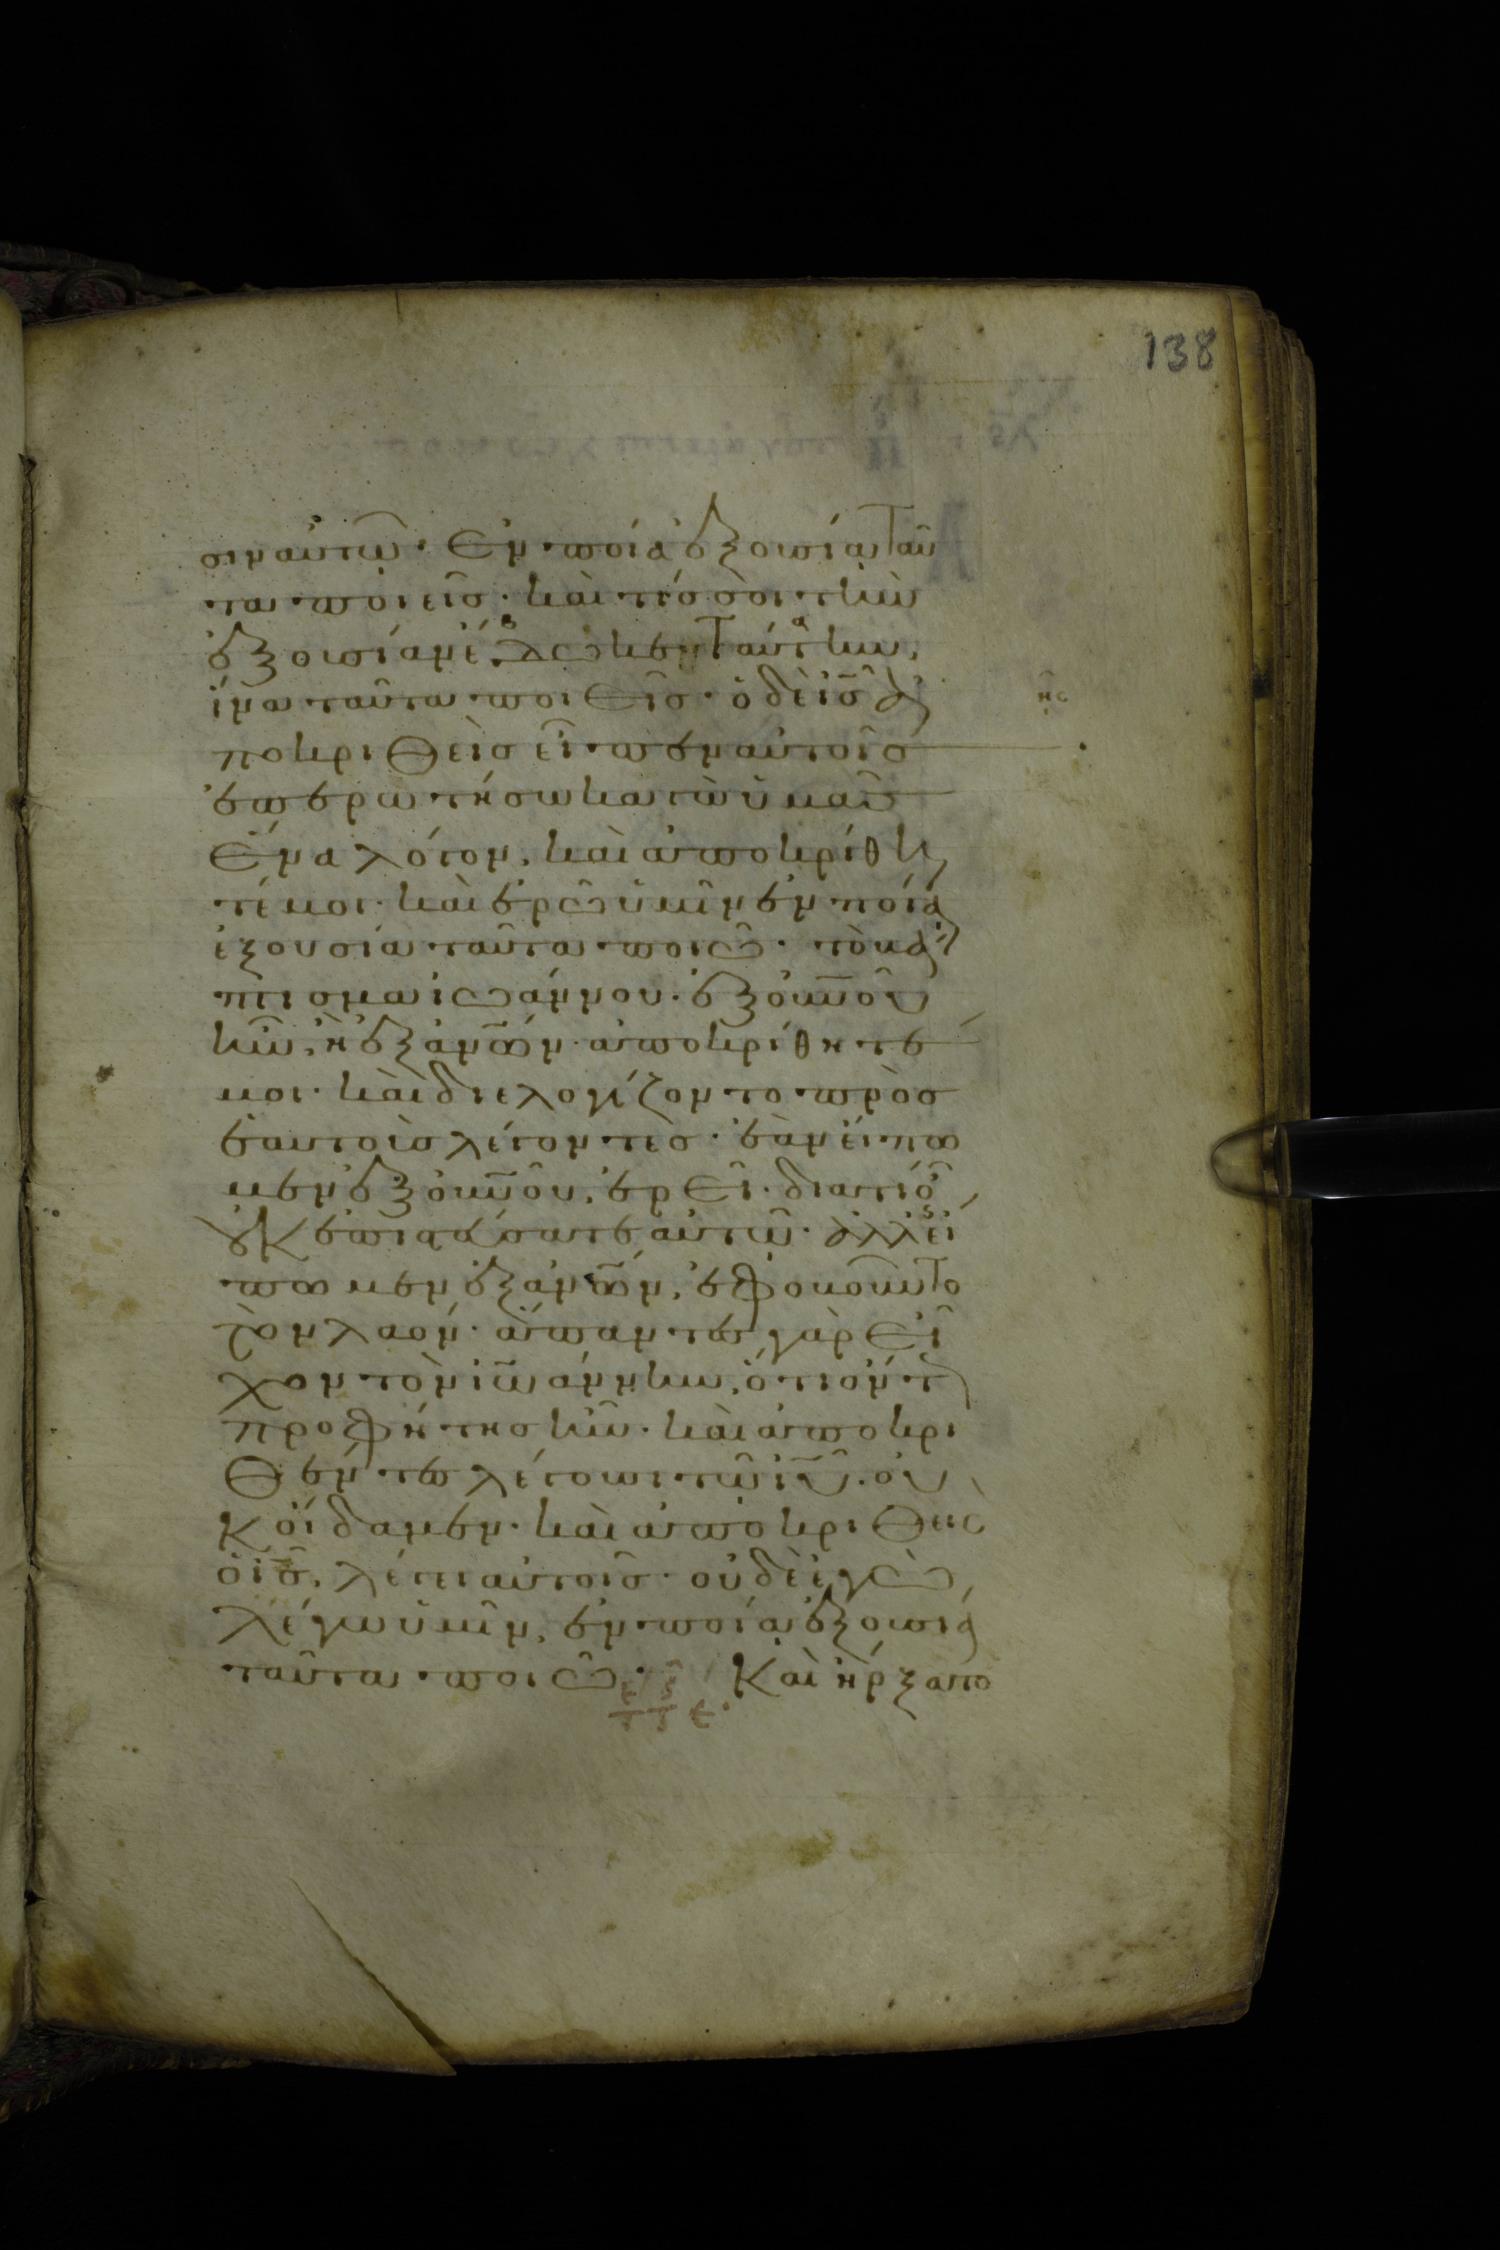 138
σιν αὐτῶ· Ἐν ποία ἐξουσία ταῦ
τα ποιεῖς· καὶ τίς σοι τὴν
ἐξουσίαν ἔδωκεν ταύτην,
ἵνα ταῦτα ποιεῖς· ὁ δὲ ι̅ς̅ ἀ
ποκριθεὶς εἶπεν αὐτοῖς
ἐπερωτήσω κἀγὼ ὑμᾶς
ἕνα λόγον, καὶ ἀποκρίθη
τέ μοι· καὶ ἐρῶ ὑμῖν ἐν ποία
ἐξουσία ταῦτα ποιῶ· τὸ βά
πτισμα ἰωάννου· ἐξ οὐ̅ν̅οῦ
ἦν, ἢ ἐξ ἀν̅ω̅ν· ἀποκρίθητέ
μοι· καὶ διελογίζοντο πρὸς
ἑαυτοὺς λέγοντες· ἐὰν εἴπω
μεν ἐξ οὐ̅ν̅οῦ, ἐρεῖ· διατί ο
ὐκ ἐπιστεύσατε αὐτῶ· ἀλλ' εἴ
πωμεν ἐξ ἀν̅ω̅ν, ἐφοβοῦντο
τὸν λαόν· ἅπαντες γὰρ εἶ
χον τὸν ἰωάννην, ὅτι ὄντ
προφήτης ἦν· καὶ ἀποκρι
θέντες λέγουσι τῶ ι̅υ̅· οὐ
κ οἴδαμεν· καὶ ἀποκριθεὶς
ὁ ι̅ς̅, λέγει αὐτοῖς· οὐδὲ ἐγὼ
λέγω ὑμῖν, ἐν ποία ἐξουσία
ταῦτα ποιῶ· Καὶ ἤρξατο